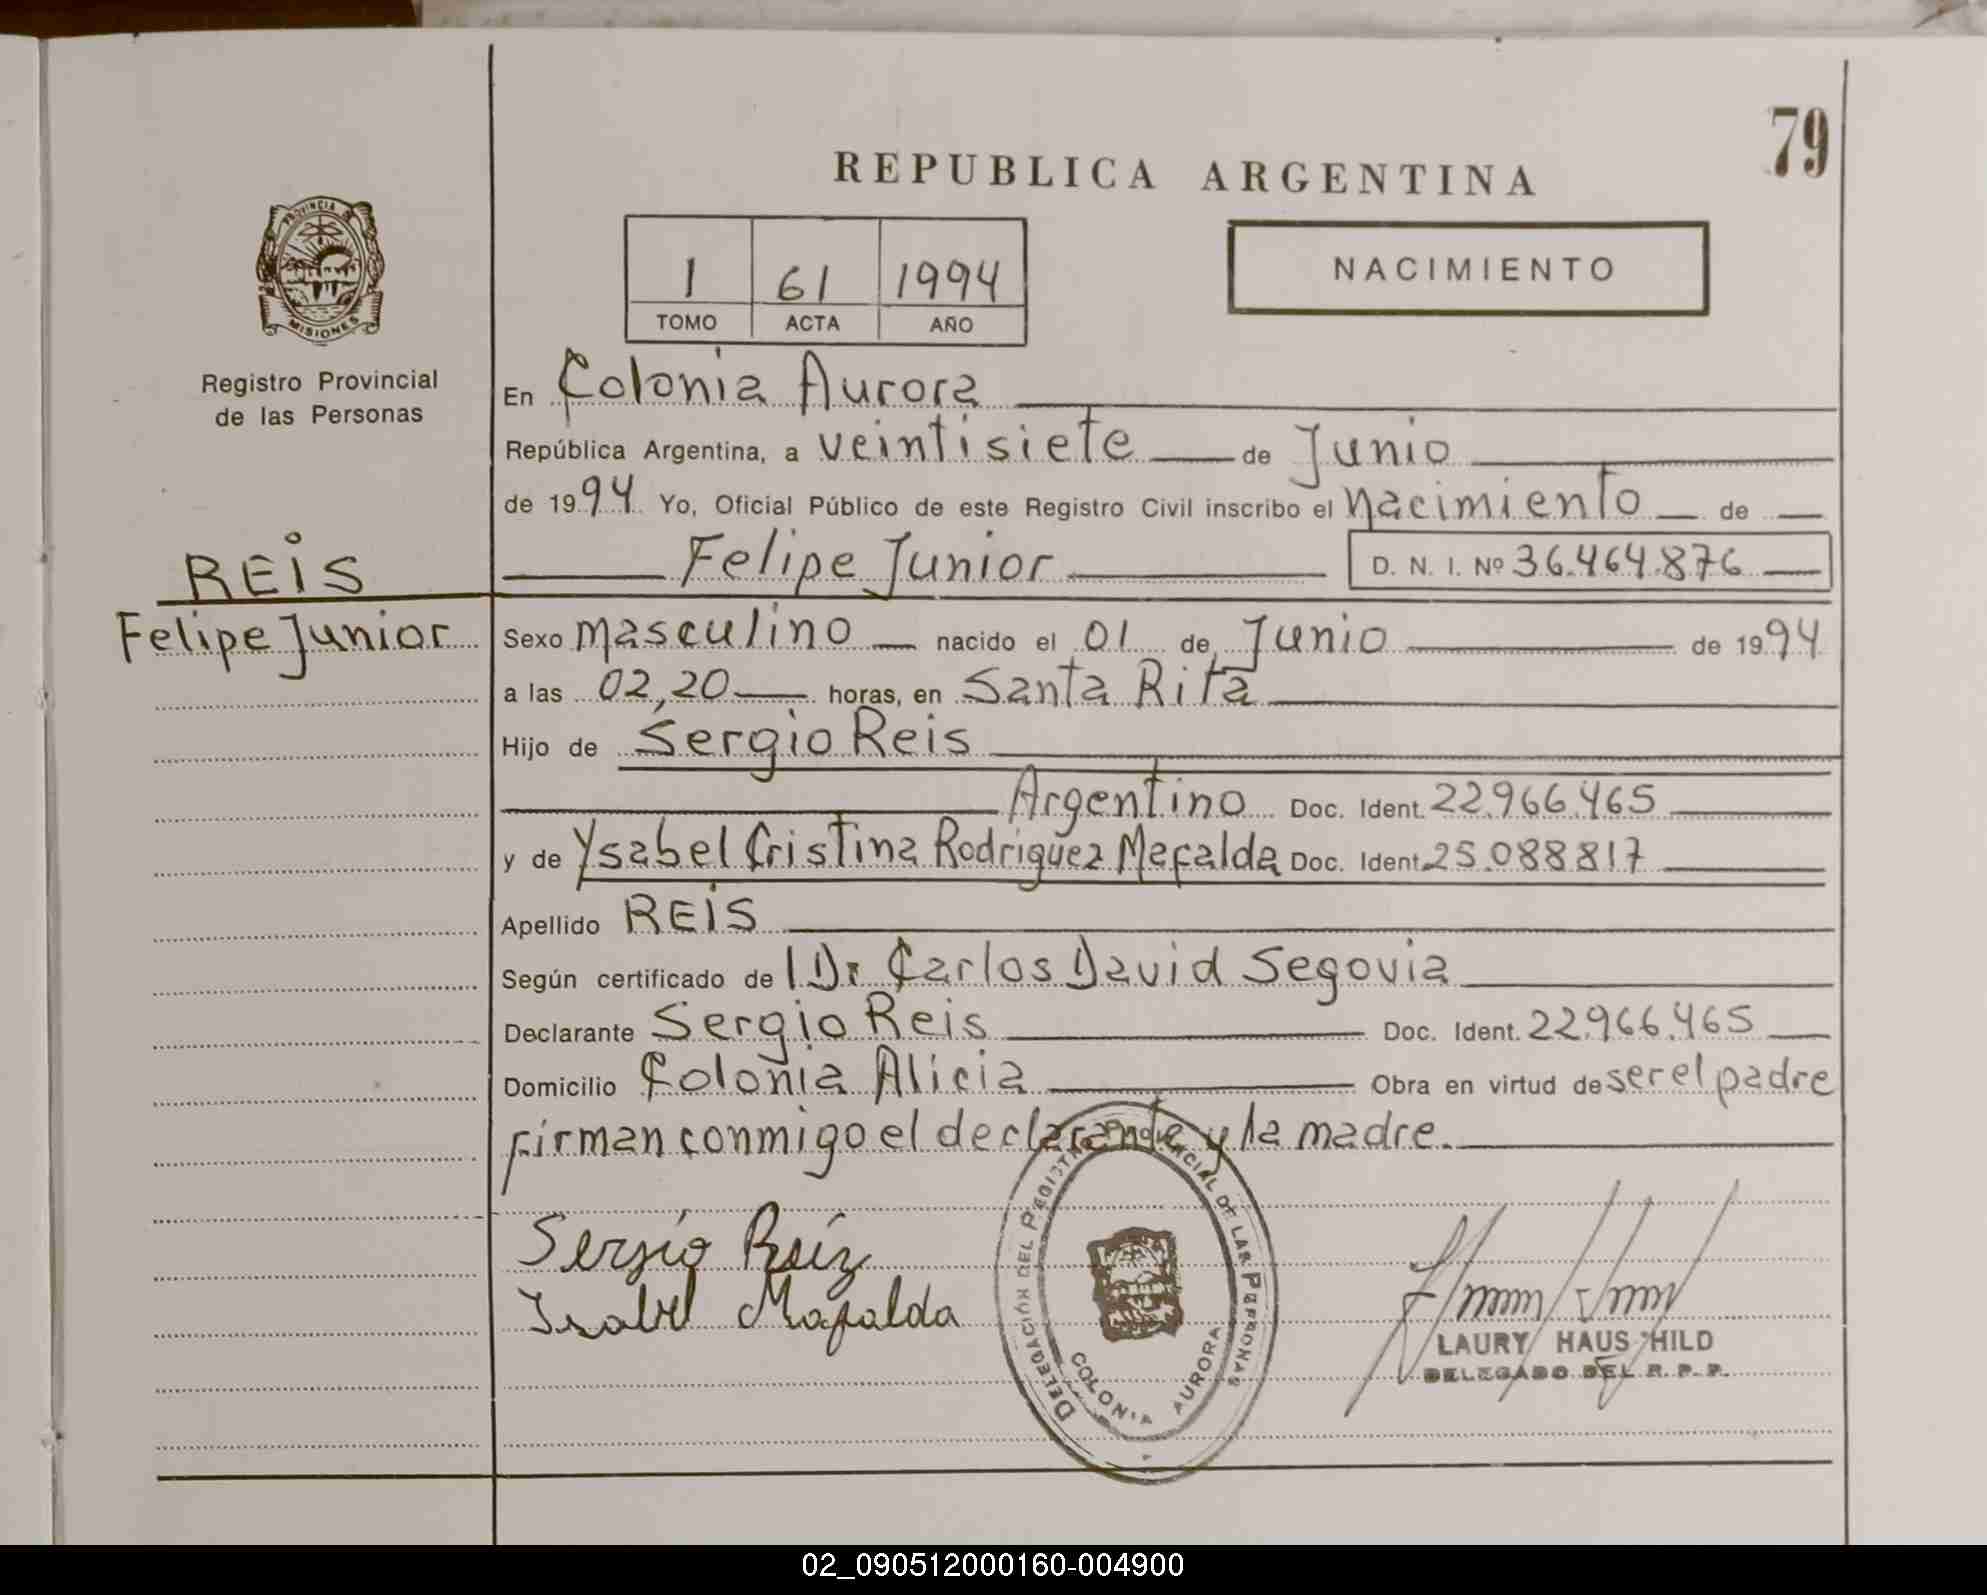 79
REPUBLICA ARGENTINA
PROVINCIA DE
MISIONES
Registro Provincial
de las Personas
1 61 1994
TOMO ACTA AÑO
NACIMIENTO
En Colonia Aurora
República Argentina, a veintisiete de Junio
de 1994 Yo, Oficial Público de este Registro Civil inscribo el nacimiento de
Felipe Junior D. N. I. Nº 36.464.876
REIS
Felipe Junior
Sexo masculino nacido el 01 de Junio de 1994
a las 02,20 horas, en Santa Rita
Hijo de Sergio Reis
Argentino Doc. Ident. 22.966.465
y de Ysabel Cristina Rodriguez Mefalda Doc. Ident. 25.088817
Apellido REIS
Según certificado de Dr Carlos David Segovia
Declarante Sergio Reis Doc. Ident. 22.966.465
Domicilio Colonia Alicia Obra en virtud de ser el padre
firman conmigo el declarante y la madre.
Sergio Reiz
Isabel Mafalda
DELEGACIÓN DEL REGISTRO PROVINCIAL DE LAS PERSONAS
COLONIA AURORA
LAURY HAUS HILD
DELEGADO DEL R. P. P.
02_090512000160-004900